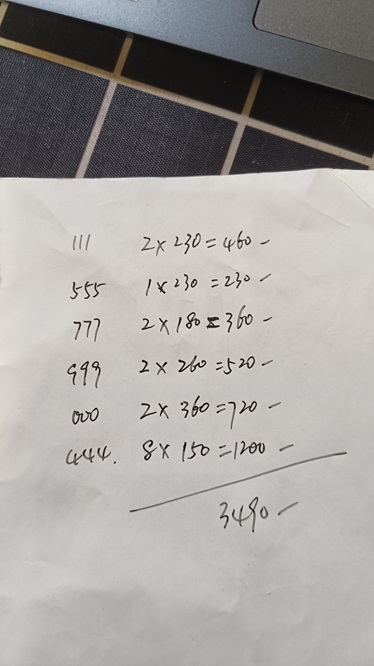 111 2×230=460-
555 1×230=230-
777 2×180=360-
999 2×260=520-
000 2×360=720-
444. 8×150=1200-
3490-